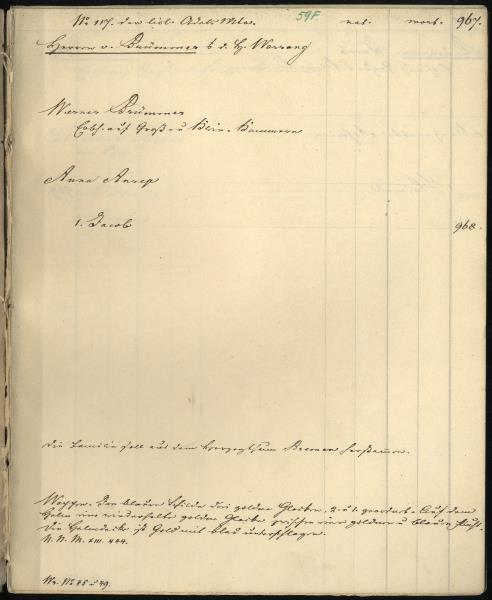 No 117. der livl. Adels Mtr. 59F. nat. mort. 967.
Herren v. Brümmer b d. H. Worrang
Werner Brümmer
Erbh. auf Groß- u Klein-Kammern
Anna Anrep
1. Jacob 968.
Die Familie soll aus dem Herzogthum Bremen herstammen.
Wappen. Im blauen Schilde drei goldne Glocken, 2. u 1. geordnet. Auf dem
Helm eine wiederholte goldne Glocke zwischen einem goldnen u blauen
Die Helmdecke ist Gold mit blau unterschlagen.
N. N. M. XIII. 444.
Nr. No 45 49.